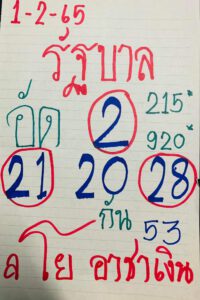 1-2-65
รัฐบาล
อัด 2 215
920
21 20 28
กัน 53
ล โย อาชาเงิน